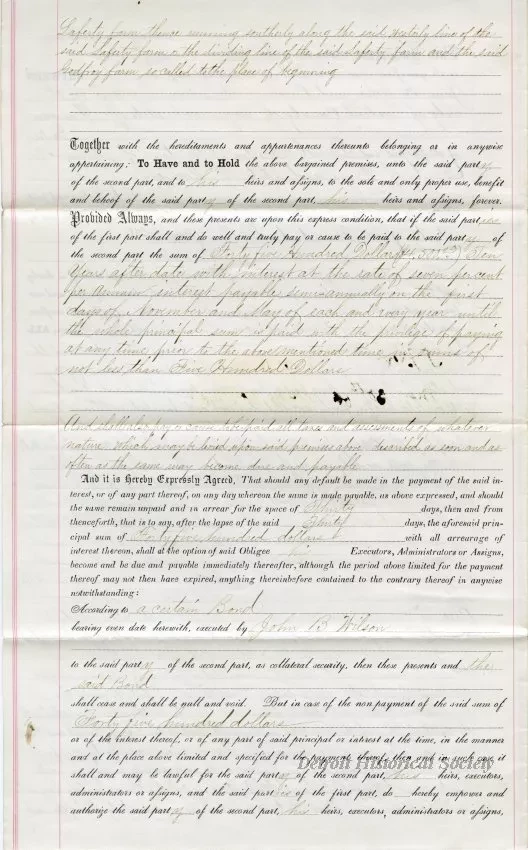 Laferty farm thence running southerly along the said westerly line of the
said Laferty farm or the dividing line of the said Laferty farm and the said
Godfroy farm so called to the place of beginning
Together with the hereditaments and appurtenances thereunto belonging or in anywise
appertaining: To Have and to Hold the above bargained premises, unto the said party
of the second part, and to his heirs and assigns, to the sole and only proper use, benefit
and behoof of the said party of the second part, his heirs and assigns, forever.
Provided Always, and these presents are upon this express condition, that if the said parties
of the first part shall and do well and truly pay or cause to be paid to the said party of
the second part the sum of Forty five Hundred Dollars Ten
Years after date with interest at the rate of seven per cent
per annum interest payable semi-annually on the first
days of November and May of each and every year until
the whole principal sum is paid with the privilege of paying
at any time prior to the above mentioned time in sums of
not less than Five Hundred Dollars
And shall also pay or cause to be paid all taxes and assessments of whatever
nature which may be levied upon said premises above described as soon and as
often as the same may become due and payable
And it is Hereby Expressly Agreed, That should any default be made in the payment of the said in-
terest, or of any part thereof, on any day whereon the same is made payable, as above expressed, and should
the same remain unpaid and in arrear for the space of days, then and from
thenceforth, that is to say, after the lapse of the said days, the aforesaid prin-
cipal sum of Forty five hundred dollars with all arrearage of
interest thereon, shall at the option of said Obligee Executors, Administrators or Assigns,
become and be due and payable immediately thereafter, although the period above limited for the payment
thereof may not then have expired, anything thereinbefore contained to the contrary thereof in anywise
notwithstanding:
According to a certain Bond
bearing even date herewith, executed by John B Wilson
to the said party of the second part, as collateral security, then these presents and the
said Bond
shall cease and shall be null and void. But in case of the non payment of the said sum of
Forty five hundred dollars
or of the interest thereof, or of any part of said principal or interest at the time, in the manner
and at the place above limited and specified for the payment thereof, then and in such case, it
shall and may be lawful for the said party of the second part, his heirs, executors,
Detroit Historical Society
administrators or assigns, and the said parties of the first part, do hereby empower and
authorize the said party of the second part, his heirs, executors, administrators or assigns,